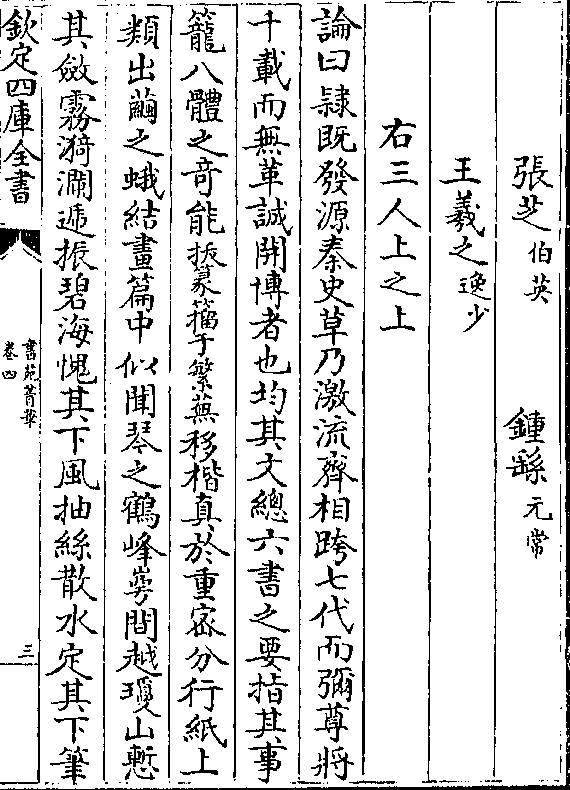 張芝伯英 鍾繇元常
王羲之逸少
右三人上之上
論曰隷既發源秦史草乃激流齊相跨七代而彌尊將
千載而無革誠開博者也均其文總六書之要指其事
籠八體之竒能拔篆籀于繁蕪移楷真於重宻分行紙上
類出繭之蛾結畫篇中似聞琴之鶴峰㟁間越瓊山慙
其斂霧漪瀾遞振碧海愧其下風抽絲散水定其下筆
欽定四庫全書
書苑菁華
卷四
三